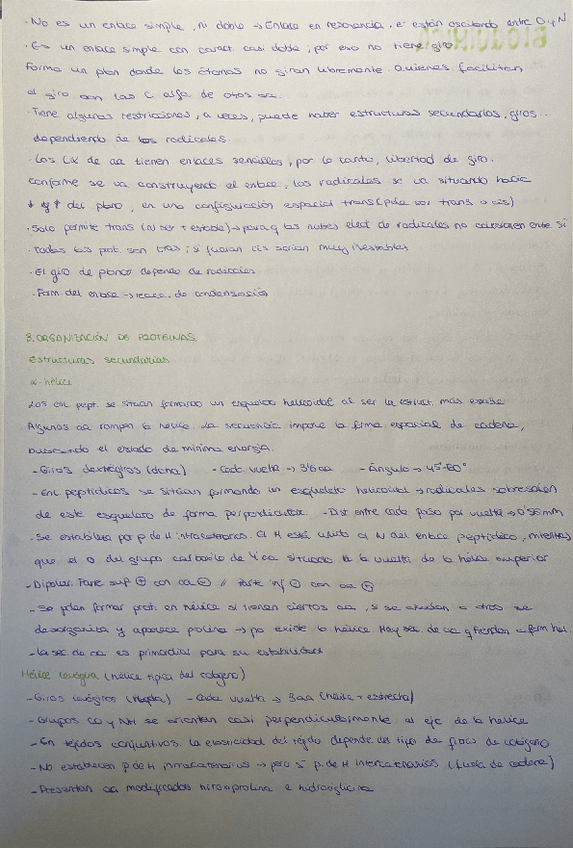 · No es un enlace simple, ni doble → Enlace en resonancia, e⁻ están oscilando entre O y N
· Es un enlace simple con caract. casi doble, por eso no tiene giro
Forma un plan donde los átomos no giran libremente. Quienes facilitan
el giro son las C alfa de otros aa...
· Tiene algunas restricciones, a veces, puede haber estructuras secundarias, giros...
dependiendo de los radicales.
· Los Cα de aa tienen enlaces sencillos, por lo tanto, libertad de giro.
Conforme se va construyendo el enlace, los radicales se va situando hacia
↓ y ↑ del plano, en una configuración espacial trans (pde ser trans o cis)
· Solo permite trans (al ser + estable) → para q las nubes elect de radicales no colisionen entre sí
· Todas las prot. son trans; si fueran cis serían muy inestables
· El giro de planos depende de radicales.
· Form del enlace → reacc. de condensación
3. ORGANIZACIÓN DE PROTEÍNAS
Estructuras secundarias
α-hélice
Los enl pept. se sitúan formando un esqueleto helicoidal al ser la estruct. más estable
Algunos aa rompen la hélice. La secuencia impone la forma espacial de cadena,
buscando el estado de mínima energía.
- Giros dextrógiros (dcha) - Cada vuelta → 3'6 aa - Ángulo → 45-60°
- Enl peptídicos se sitúan formando un esqueleto helicoidal → radicales sobresalen
de este esqueleto de forma perpendicular - Dist entre cada paso por vuelta → 0'56 mm
- Se estabiliza por p de H intracatenarios. El H está unido al N del enlace peptídico, mientras
que el O del grupo carbonilo de 4º aa situado en la vuelta de la hélice superior
- Dipolar. Parte sup ⊕ con aa ⊖ // Parte inf ⊖ con aa ⊕
- Se pden formar prot. en hélice si tienen ciertos aa, si se añaden a otros se
desorganiza y aparece prolina → no existe la hélice. Hay sec de aa q tienden a form hel.
- La sec de aa es primordial para su estabilidad
Hélice levógira (hélice típica del colágeno)
- Giros levógiros (izqda) - Cada vuelta → 3aa (hélice + estrecha)
- Grupos CO y NH se orientan casi perpendicularmente al eje de la hélice
- En tejidos conjuntivos. La elasticidad del tejido depende del tipo de fibras de colágeno
- No establecen p de H intracatenarios → pero sí p. de H intercatenarios (fuera de cadena)
- Presentan aa modificados hidroxiprolina e hidroxiglicina